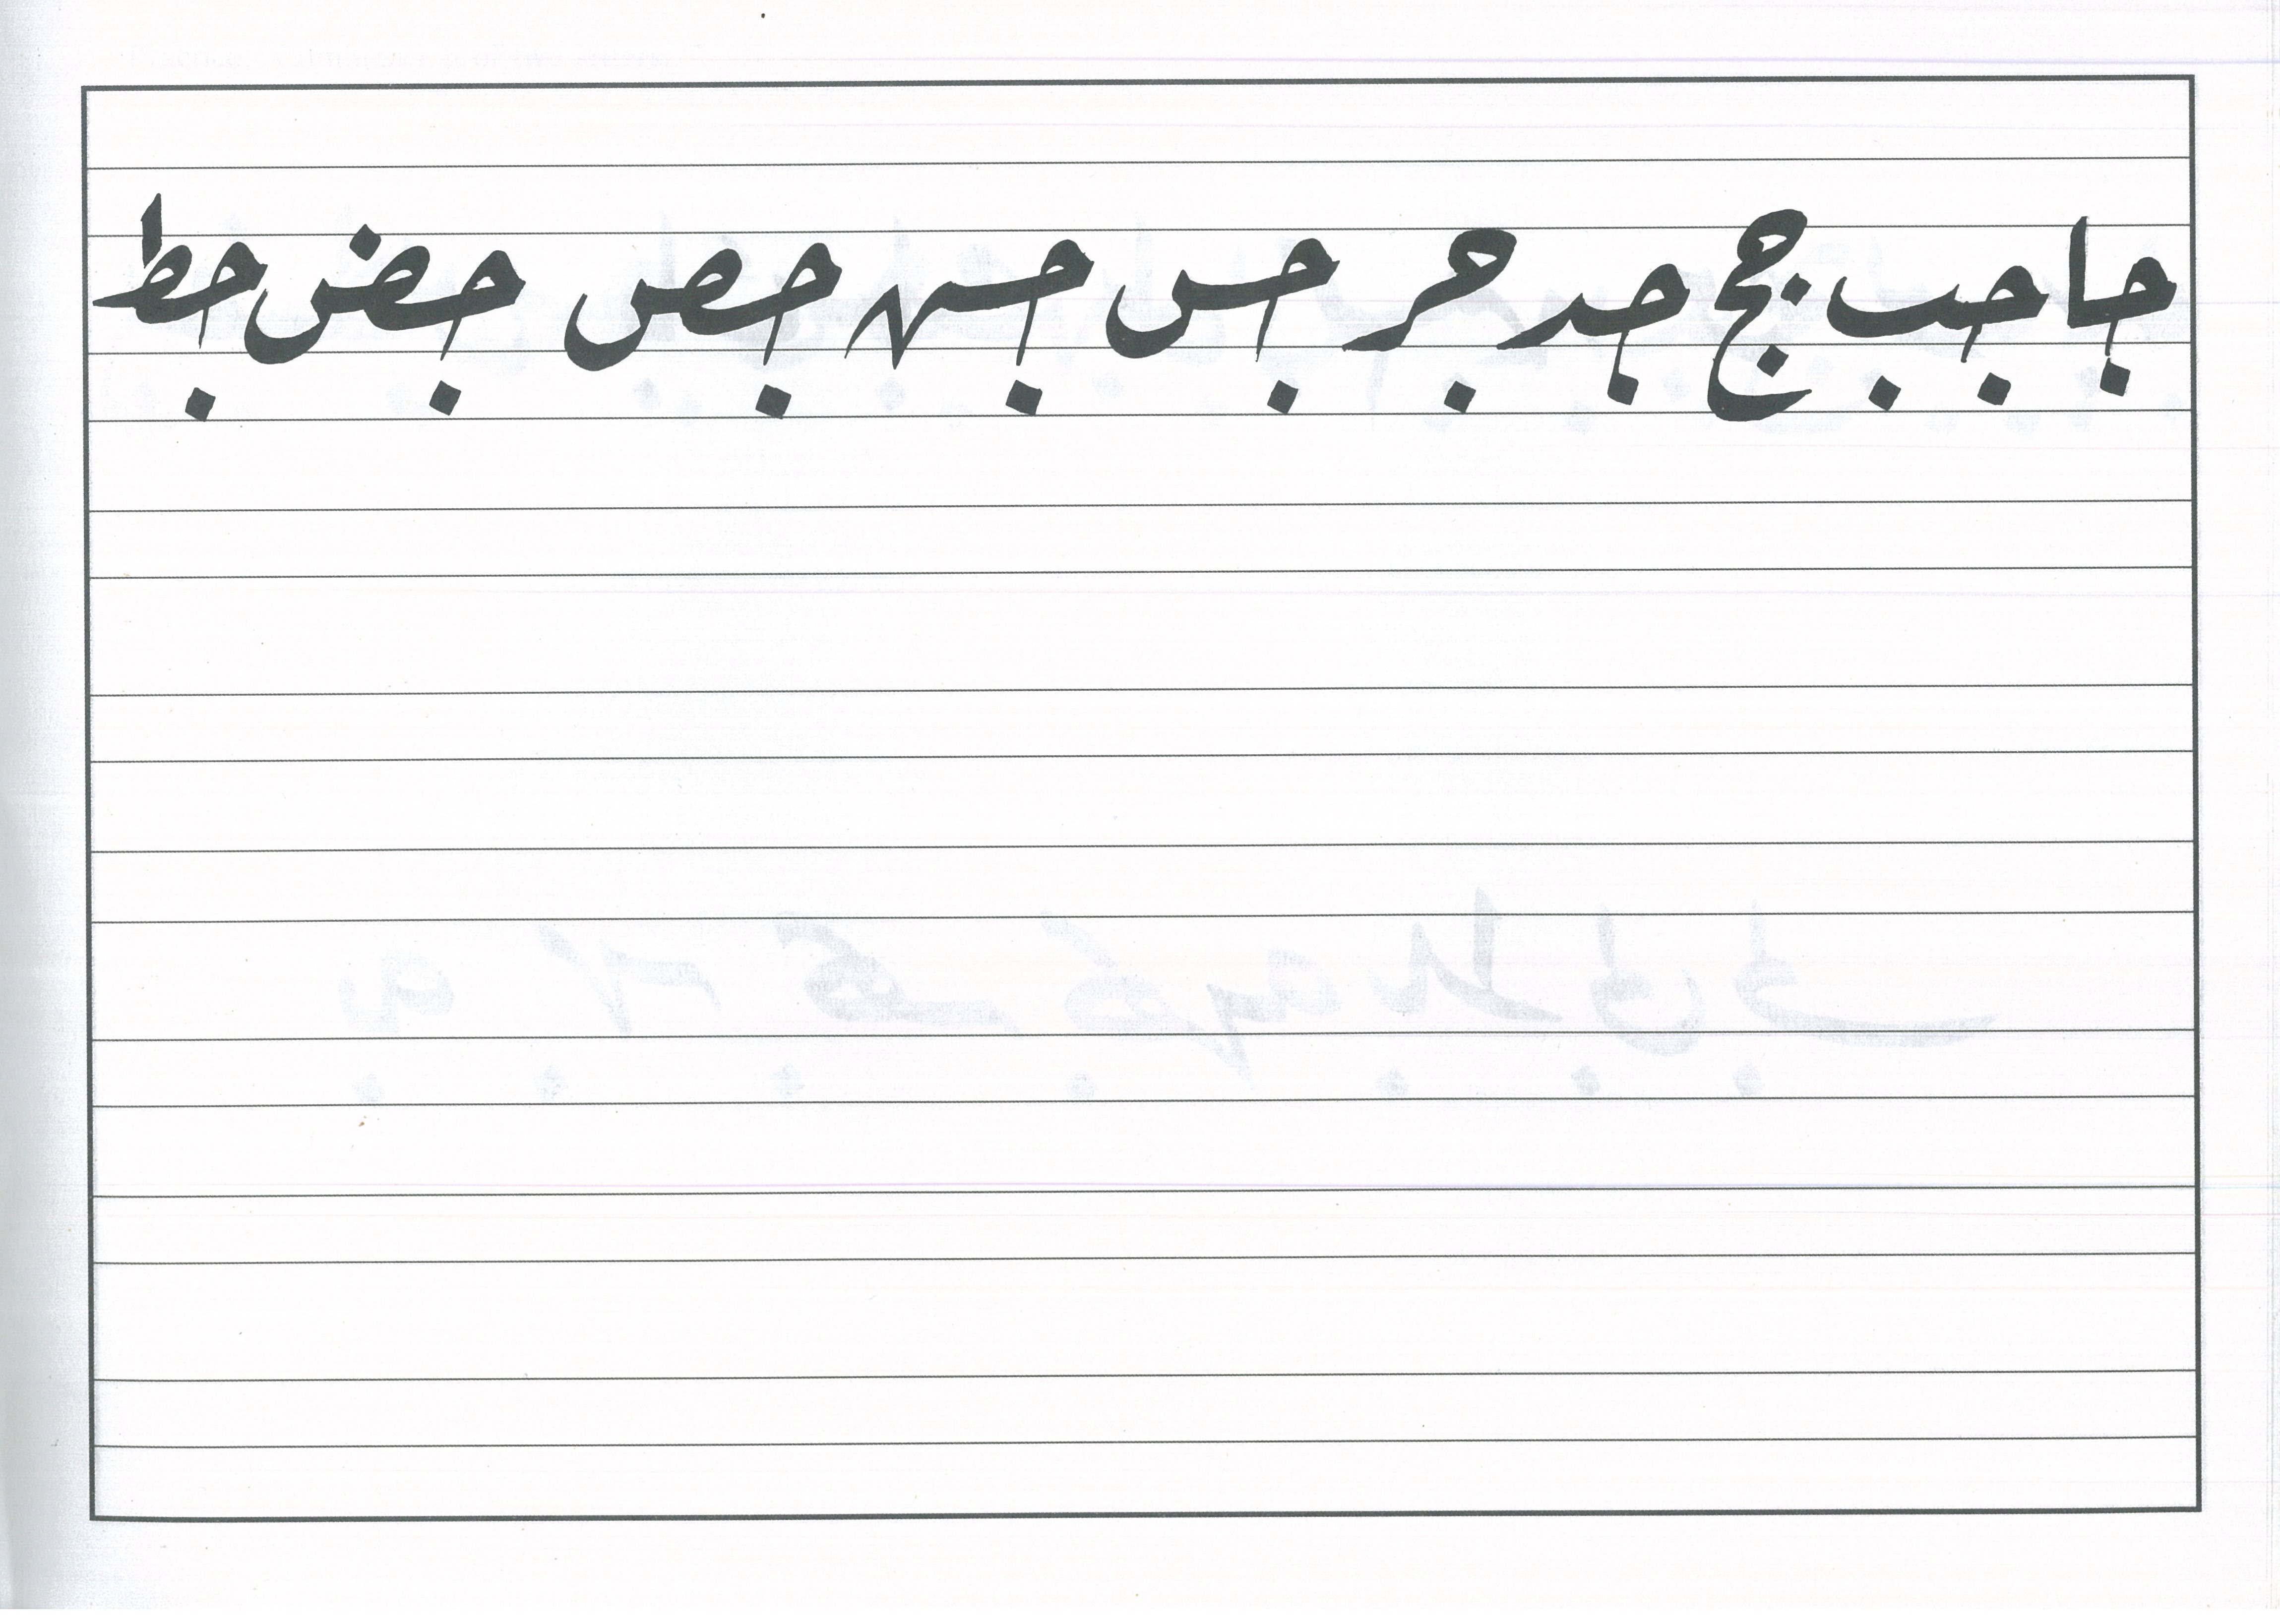 جا جب جج جد جر جس جسه جص جض جط